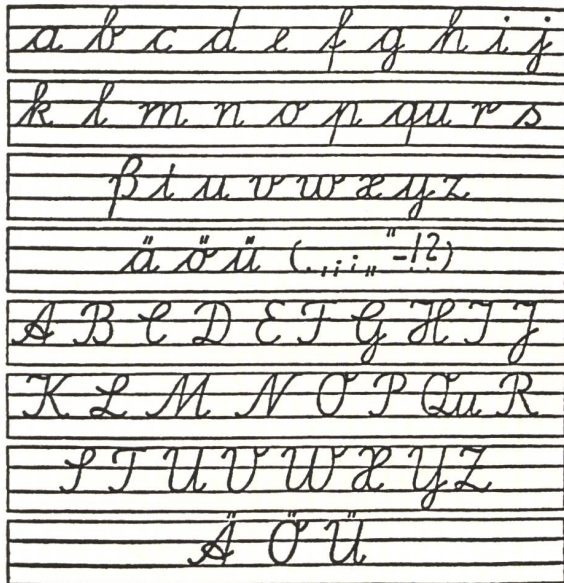 a b c d e f g h i j
k l m n o p qu r s
ß t u v w x y z
ä ö ü (. , ; : „ “ - ! ? )
A B C D E F G H I J
K L M N O P Qu R
S T U V W X Y Z
Ä Ö Ü